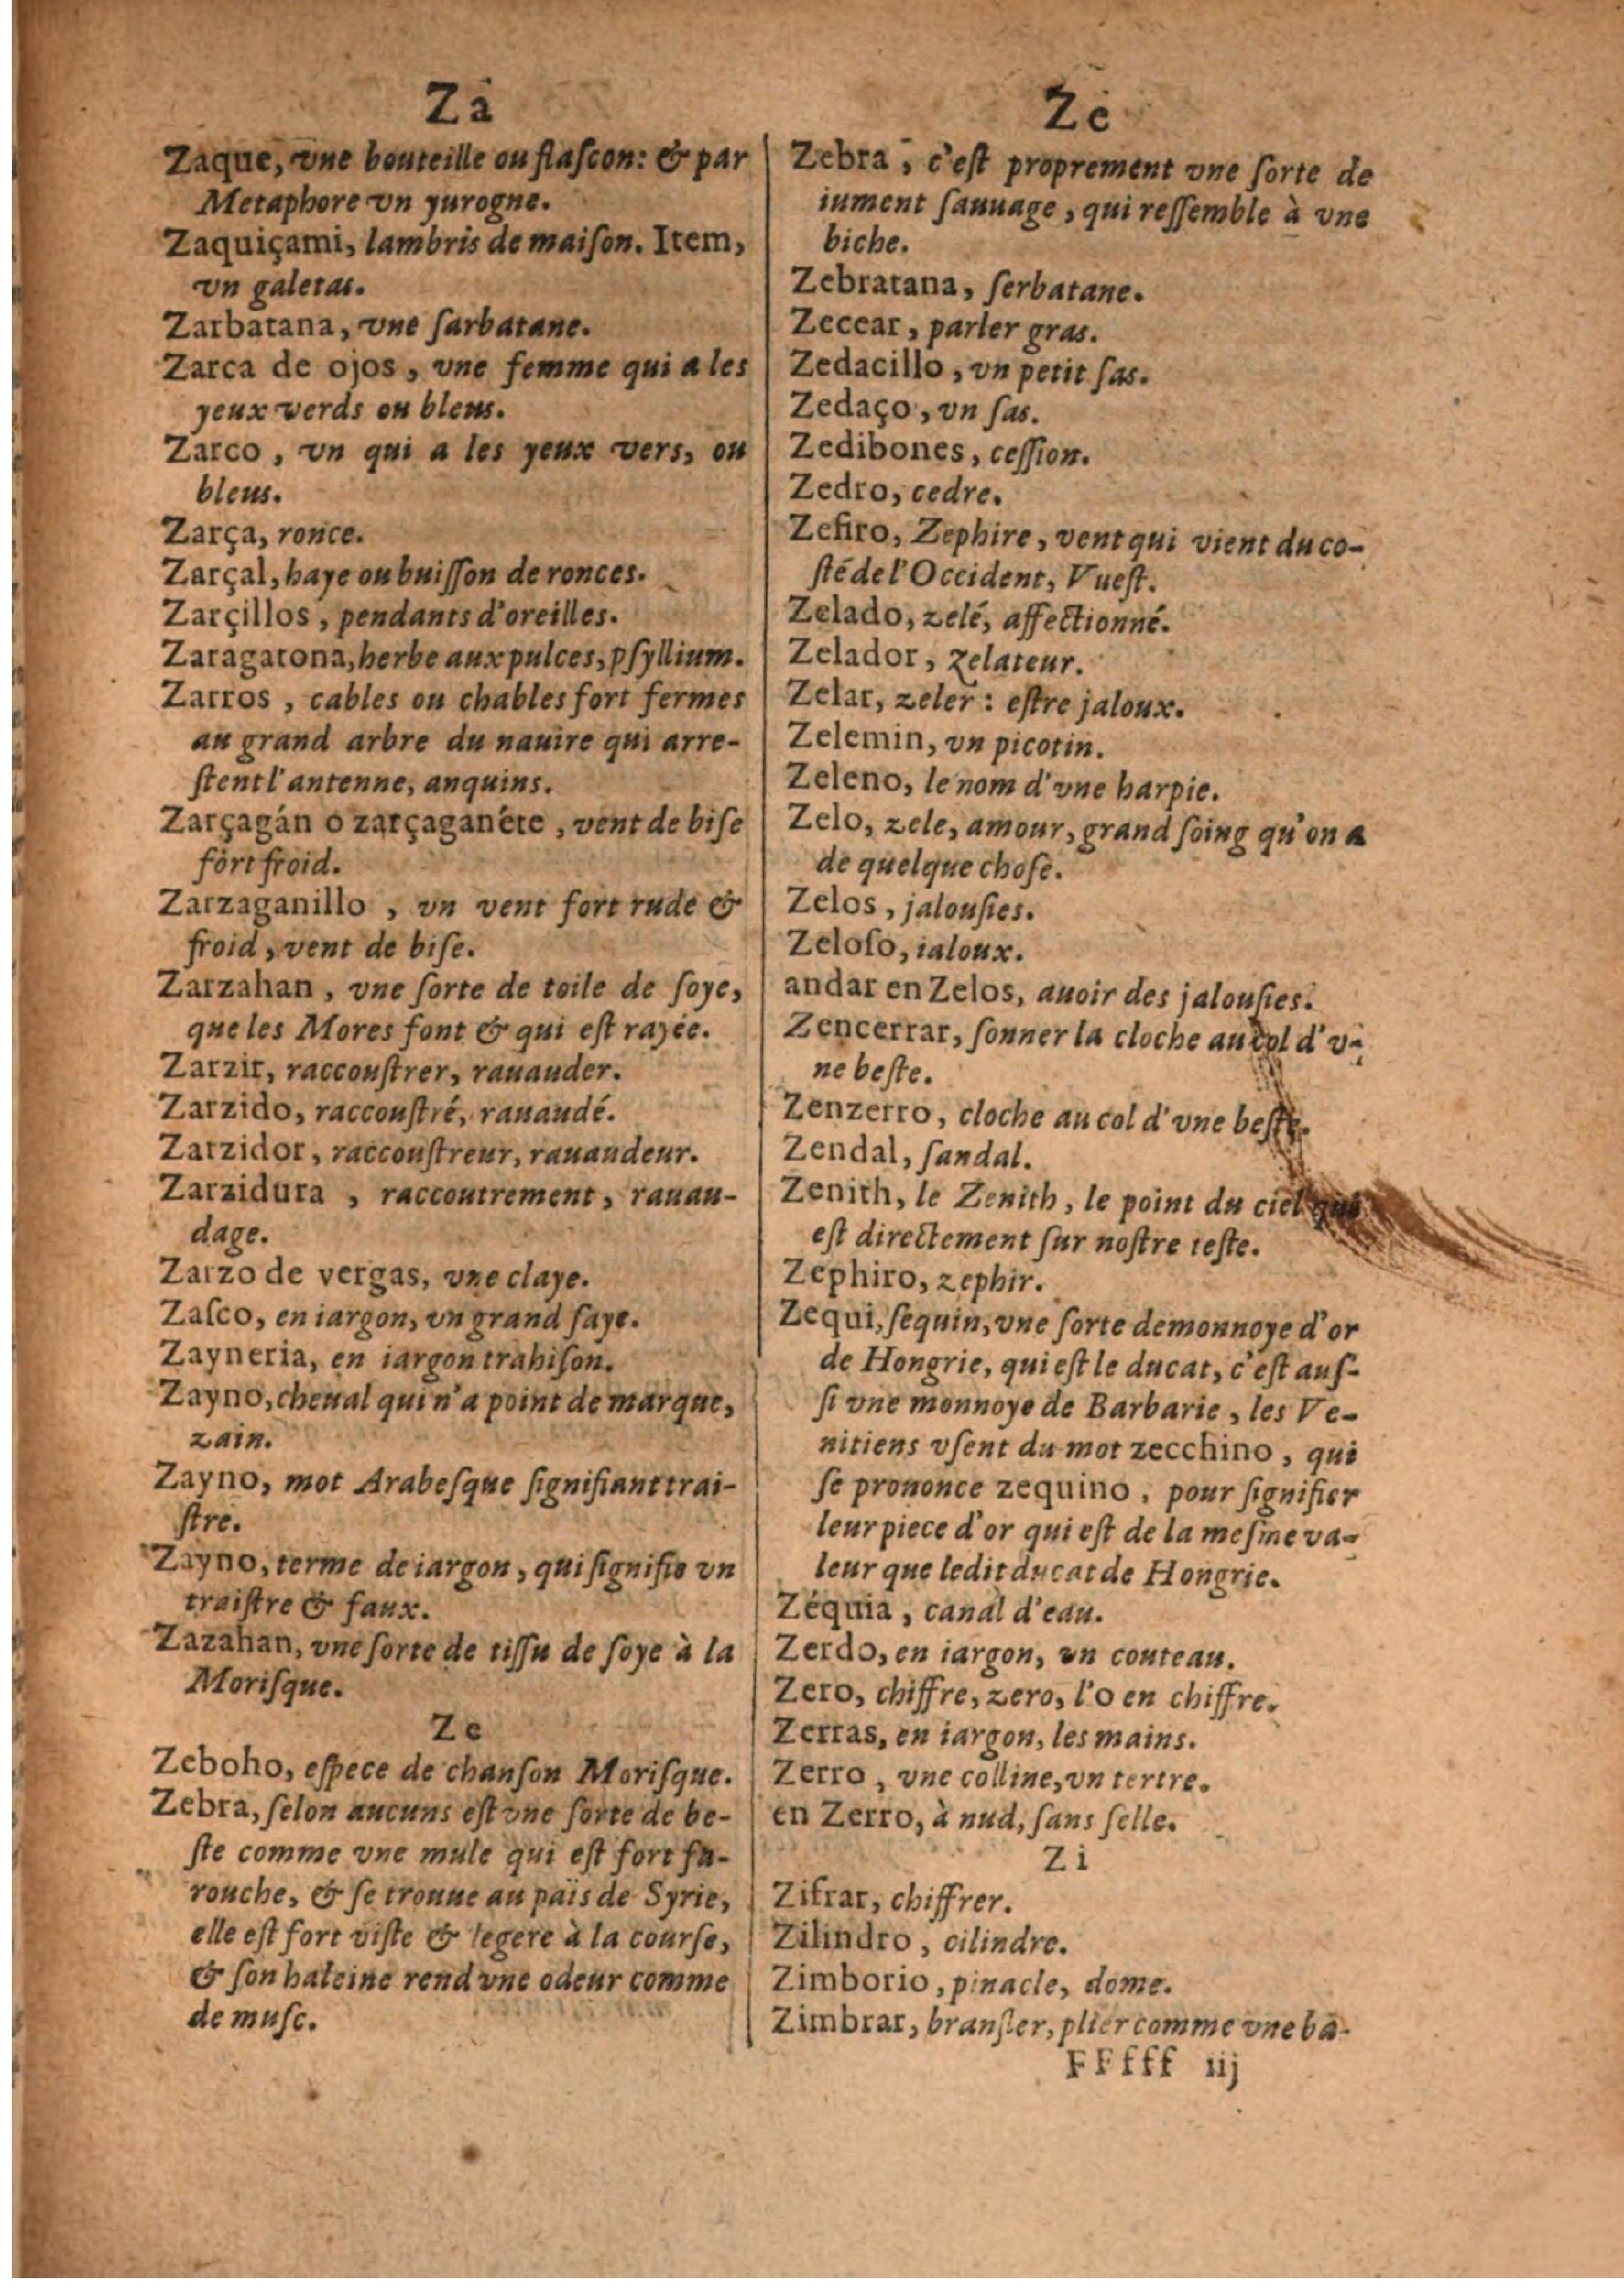 Za
Zaque, vne bouteille ou flaſcon: & par
Metaphore vn yurogne.
Zaquiçami, lambris de maiſon. Item,
vn galetas.
Zarbatana, vne ſarbatane.
Zarca de ojos, vne femme qui a les
yeux verds ou bleus.
Zarco, vn qui a les yeux vers, ou
bleus.
Zarça, ronce.
Zarçal, haye ou buiſſon de ronces.
Zarçillos, pendants d'oreilles.
Zaragatona, herbe aux pulces, pſyllium.
Zarros, cables ou chables fort fermes
au grand arbre du nauire qui arre-
ſtent l'antenne, anquins.
Zarçagán o zarçaganéte, vent de biſe
fort froid.
Zarzaganillo, vn vent fort rude &
froid, vent de biſe.
Zarzahan, vne ſorte de toile de ſoye,
que les Mores font & qui eſt rayée.
Zarzir, raccouſtrer, rauauder.
Zarzido, raccouſtré, rauaudé.
Zarzidor, raccouſtreur, rauaudeur.
Zarzidura, raccoutrement, rauau-
dage.
Zarzo de vergas, vne claye.
Zaſco, en iargon, vn grand ſaye.
Zayneria, en iargon trahiſon.
Zayno, cheual qui n'a point de marque,
zain.
Zayno, mot Arabeſque ſignifiant trai-
ſtre.
Zayno, terme de iargon, qui ſignifie vn
traiſtre & faux.
Zazahan, vne ſorte de tiſſu de ſoye à la
Moriſque.
Ze
Zeboho, eſpece de chanſon Moriſque.
Zebra, ſelon aucuns eſt vne ſorte de be-
ſte comme vne mule qui eſt fort fa-
rouche, & ſe trouue au païs de Syrie,
elle eſt fort viſte & legere à la courſe,
& ſon haleine rend vne odeur comme
de muſc.
Ze
Zebra, c'eſt proprement vne ſorte de
iument ſauuage, qui reſſemble à vne
biche.
Zebratana, ſerbatane.
Zecear, parler gras.
Zedacillo, vn petit ſas.
Zedaço, vn ſas.
Zedibones, ceſſion.
Zedro, cedre.
Zefiro, Zephire, vent qui vient du co-
ſté de l'Occident, Vueſt.
Zelado, zelé, affectionné.
Zelador, zelateur.
Zelar, zeler: eſtre jaloux.
Zelemin, vn picotin.
Zeleno, le nom d'vne harpie.
Zelo, zele, amour, grand ſoing qu'on a
de quelque choſe.
Zelos, jalouſies.
Zeloſo, ialoux.
andar en Zelos, auoir des jalouſies.
Zencerrar, ſonner la cloche au col d'v-
ne beſte.
Zenzerro, cloche au col d'vne beſte.
Zendal, ſandal.
Zenith, le Zenith, le point du ciel qui
eſt directement ſur noſtre teſte.
Zephiro, zephir.
Zequi, ſequin, vne ſorte de monnoye d'or
de Hongrie, qui eſt le ducat, c'eſt auſ-
ſi vne monnoye de Barbarie, les Ve-
nitiens vſent du mot zecchino, qui
ſe prononce zequino, pour ſignifier
leur piece d'or qui eſt de la meſme va-
leur que ledit ducat de Hongrie.
Zéquia, canal d'eau.
Zerdo, en iargon, vn couteau.
Zero, chiffre, zero, l'o en chiffre.
Zerras, en iargon, les mains.
Zerro, vne colline, vn tertre.
en Zerro, à nud, ſans ſelle.
Zi
Zifrar, chiffrer.
Zilindro, cilindre.
Zimborio, pinacle, dome.
Zimbrar, branſler, plier comme vne ba-
FFfff iij